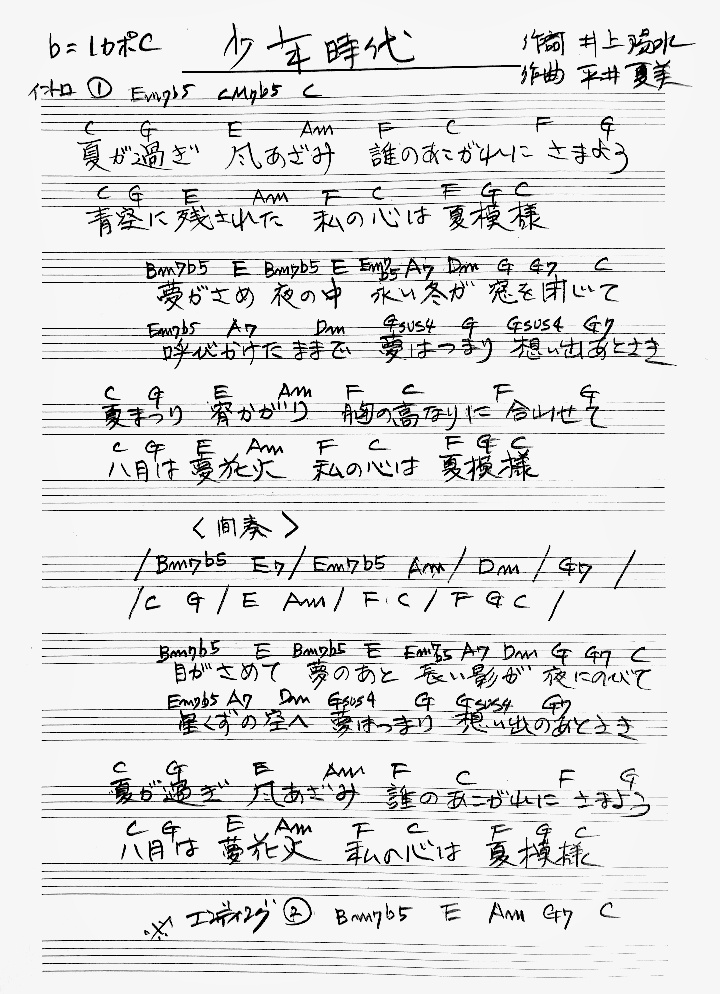 b=1カポC 少年時代 作詞 井上陽水
作曲 平井夏美
イントロ ① Em7b5 CM7b5 C
C G E Am F C F G
夏が過ぎ 風あざみ 誰のあこがれに さまよう
C G E Am F C F G C
青空に残された 私の心は 夏模様
Bm7b5 E Bm7b5 E Em7b5 A7 Dm G G7 C
夢がさめ 夜の中 永い冬が 窓を閉じて
Em7b5 A7 Dm Gsus4 G Gsus4 G7
呼びかけたままで 夢はつまり 想い出あとさき
C G E Am F C F G
夏まつり 宵かがり 胸の高なりに 合わせて
C G E Am F C F G C
八月は 夢花火 私の心は 夏模様
〈間奏〉
/Bm7b5 E7/Em7b5 Am/Dm/G7/
/C G/E Am/F C/F G C/
Bm7b5 E Bm7b5 E Em7b5 A7 Dm G G7 C
目がさめて 夢のあと 長い影が 夜にのびて
Em7b5 A7 Dm Gsus4 G Gsus4 G7
星くずの空へ 夢はつまり 想い出のあとさき
C G E Am F C F G
夏が過ぎ 風あざみ 誰のあこがれに さまよう
C G E Am F C F G C
八月は 夢花火 私の心は 夏模様
※ エンディング ② Bm7b5 E Am G7 C